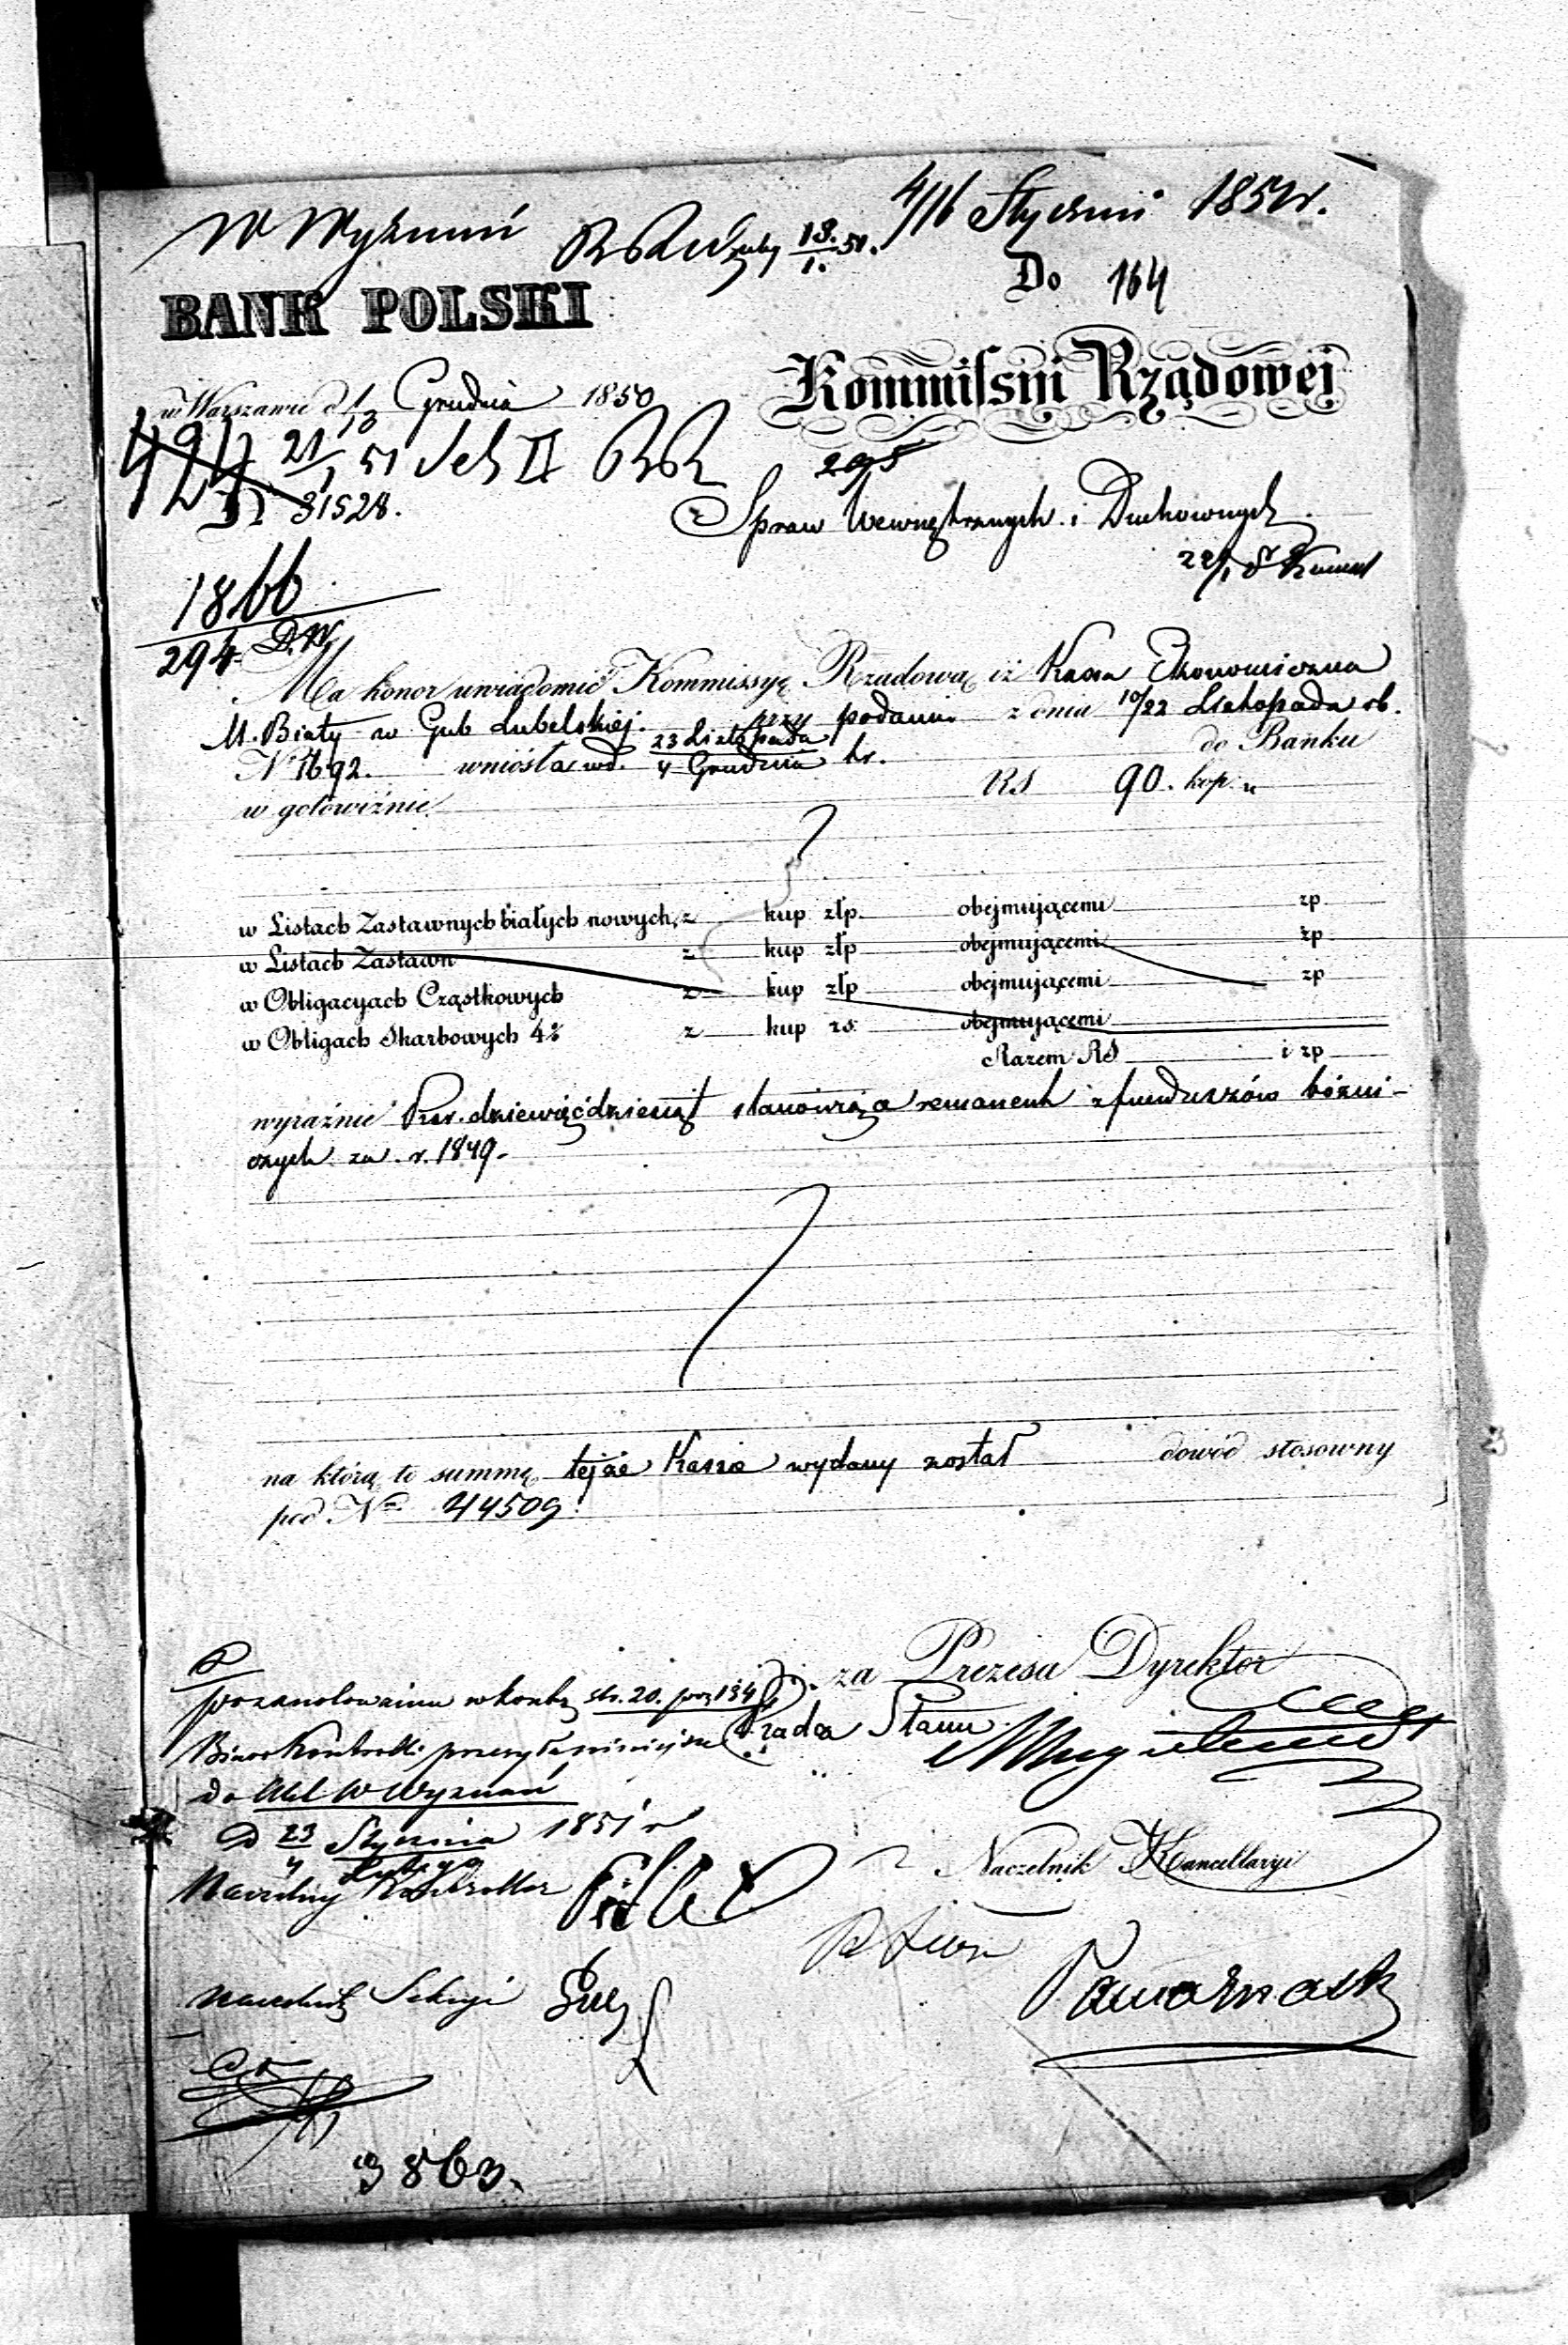 W Wyznań
4/16 Stycznia 1851 r.
13./1. 51.
Do 164
BANK POLSKI
Kommissyi Rządowej
w Warszawie d. 1/13 Grudnia 1850
424 21/1 51 Sek II
295
N 31528.
Spraw Wewnętrznych i Duchownych
22/1
1866
294 D.W.
Ma honor uwiadomić Kommissyę Rządową iż Kassa Ekonomiczna
M. Biały w Gub Lubelskiej. przy podaniu z dnia 10/22 Listopada rb.
N 1692. wniosła wd. 23 Listopada / 4 Grudnia br. do Banku
w gotowiźnie RS 90. kop. „
w Listach Zastawnych białych nowych, z kup złp. obejmującemi zp
w Listach Zastawn z kup złp obejmującemi zp
w Obligacyach Cząstkowych z kup złp obejmującemi zp
w Obligach Skarbowych 4% z kup rs. obejmującemi
Razem RS i zp
wyraźnie Rsr. dziewięćdziesiąt stanowiące remanent z funduszów bóżni-
cznych za r. 1849.
na którą to summę tejże Kassie wydany został dowód stosowny
pod Nr 44509.
za Prezesa Dyrektor
po zanotowaniu w kontr. str. 20. poz 134
Radca Stanu
Biuro Kontrolli przesyła niniejsze
do Wdł. W Wyznań
D 23/4 Stycznia/Lutego 1851 r
Naczelnik Kancellaryi
Naczelny Kontroller
Naczelnik Sekcyi
3863.